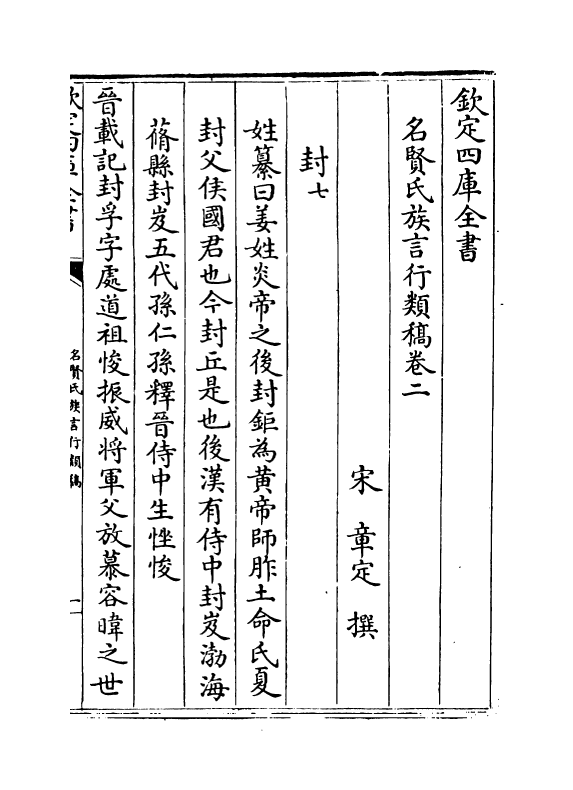 欽定四庫全書
名賢氏族言行類稿卷二
宋 章定 撰
封七
姓纂曰姜姓炎帝之後封鉅為黄帝師胙土命氏夏
封父侯國君也今封丘是也後漢有侍中封岌渤海
蓨縣封岌五代孫仁孫釋晉侍中生悝悛
晉載記封孚字處道祖悛振威将軍父放慕容暐之世
名賢氏族言行類稿
一